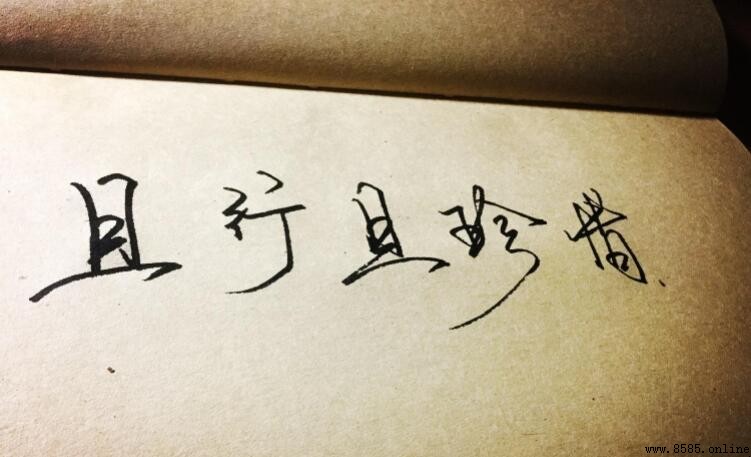 且行且珍惜.
www.8585.online